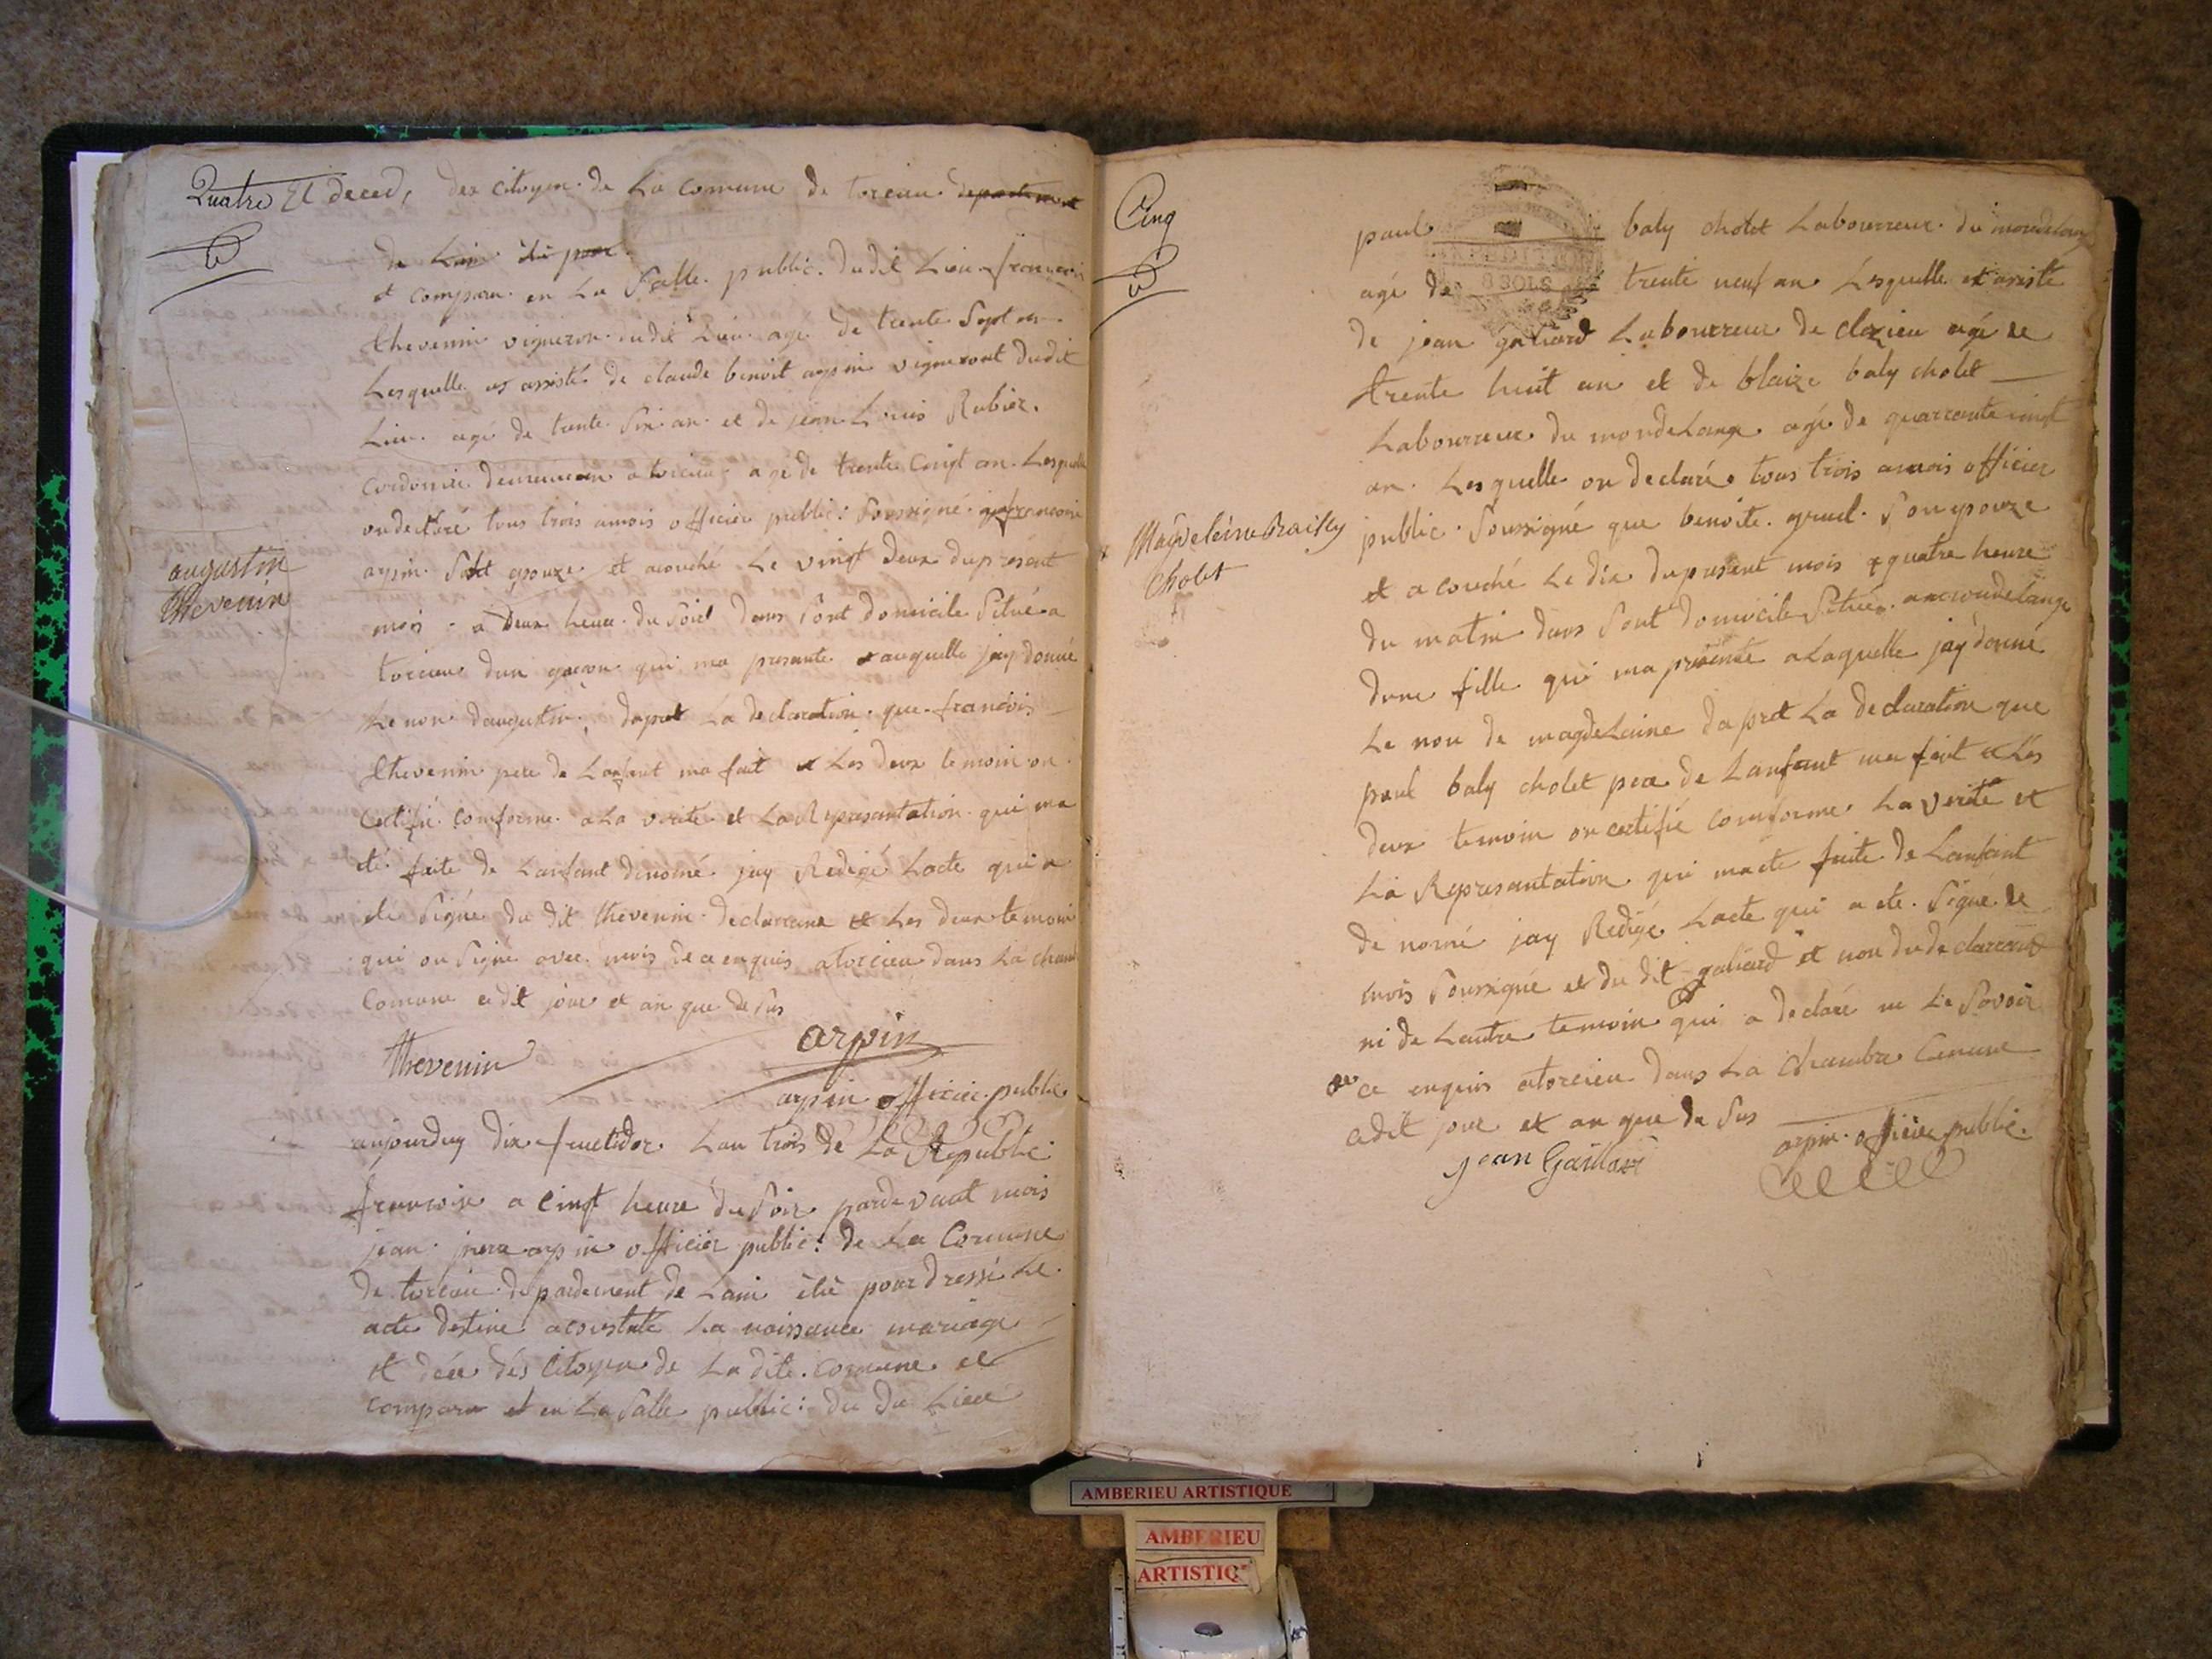 Quatre
Et deced, des citoyen de La comune de torcieu departement
de Lain élu pour
et comparu en La Salle public dudit Lieu francois
thevenin vigneron dudit Lieu age de trente Sept an
Lesquelle es assisté de claude benoit arpin vigneront dudit
Lieu agé de trente Six an et de jean Louis Rubier
Cordonier demeuran a torcieu age de trente Cingt an Lesquelle
on declaré tous trois amois officier public Soussigné que francoise
arpin Sont epouze et acouché Le vingt deux dupresent
mois a deux heure du Soir dans Sont domicile Situé a
torcieu dun garcon qui ma presante et auquelle jay donné
Le non daugustin dapret La declaration que francois
thevenin pere de Lanfant ma fait et Les deux temoin on
Certifié comforme a La verite et La Represantation qui ma
été faite de Lanfant denomé jay Redigé Lacte qui a
été Signé du dit thevenin declarant et Les deux temoin
qui on Signe avec mois de a enquis atorcieu dans La chanb
Comune edit jour et an que de Sus
augustin
thevenin
thevenin arpin
arpin officier public
aujourduy dix fructidor Lan trois de La Republic
francoise a cingt heure du Soir pardevant mois
jean arpin officier public de La Comune
de torcieu departement de Lain élu pour dressé Le
acte destiné a constaté La naissance mariage
et décé dés Citoyen de La dite comune et
comparu et en La Salle public du du Lieu
Cinq
paul baly cholet Labourreur du mondelange
agé de trente neuf an Lesquelle et asisté
de jean galiard Labourreur de clezieu agé de
trente huit an et de blaize baly cholet
Labourreur du mondelange agé de quarrante cingt
an Lesquelle on declaré tous trois amois officier
public Soussigné que benoite gruel Son epouze
et acouché Le dix dupresent mois a quatre heure
du matin dans Sont domicile Situé a mondelange
dune fille qui ma presenté a Laquelle jay donné
Le non de magdeLaine dapret La declaration que
paul baly cholet pere de Lanfant ma fait et Les
deux temoin on certifié comforme La verité et
La Represantation qui ma ete faite de Lanfant
de nomé jay Redigé Lacte qui a ete Signe de
mois Soussigné et du dit galiard et non du declarant
ni de Lautre temoin qui a declaré ne Le Savoir
de ce enquis atorcieu dans La Chambre Comune
edit jour et an que de Sus
Magdeleine Bailly
Cholet
jean Gaillard
arpin officier public
8 SOLS
AMBERIEU ARTISTIQUE
AMBERIEU
ARTISTIQ